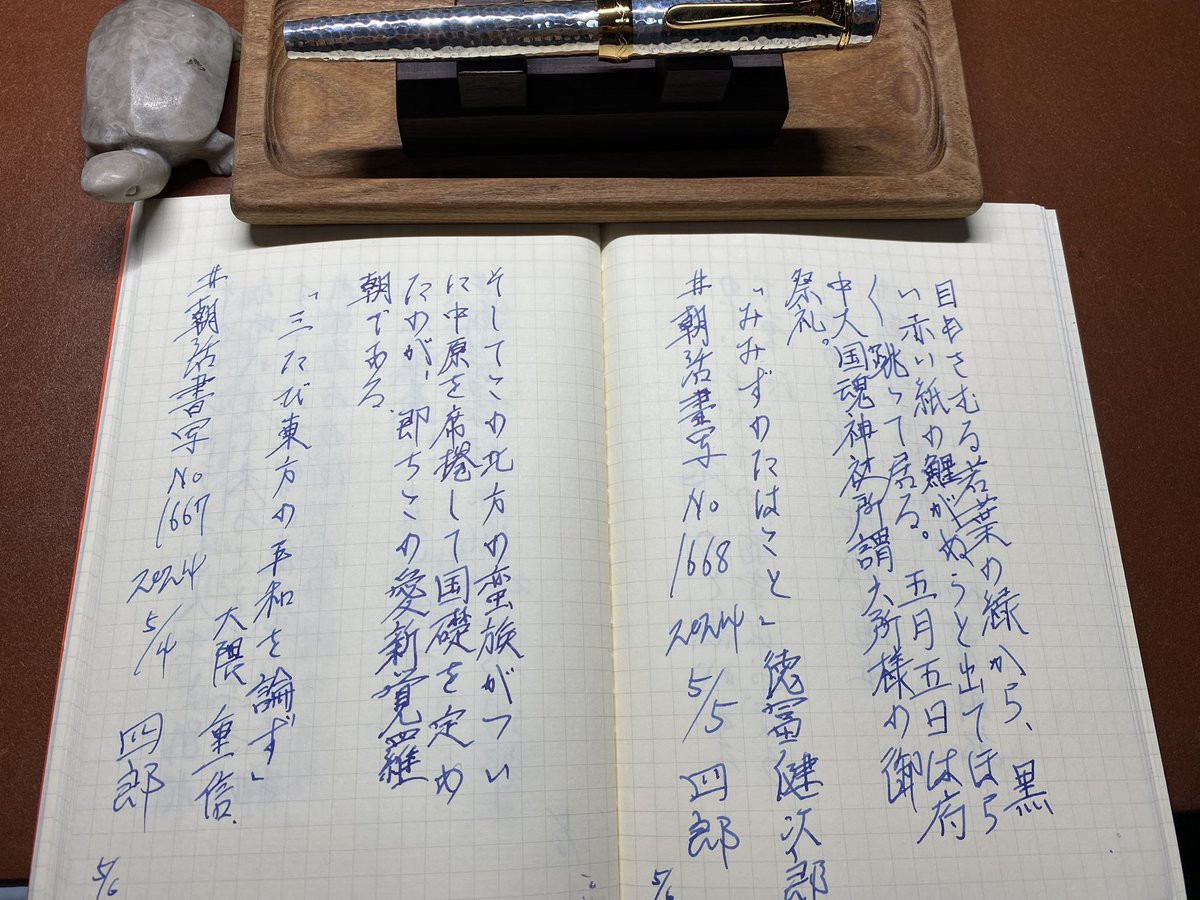 目もさむる若葉の緑から、黒
い赤い紙の鯉がぬうと出てほら
〱跳って居る。五月五日は府
中大国魂神社所謂六所様の御
祭礼。
「みみずのたはこと」徳冨健次郎
#朝活書写 No 1668 2024 5/5 四郎
5/6
そしてこの北方の蛮族がつい
に中原を席捲して国礎を定め
たのが、即ちこの愛新覚羅
朝である。
「三たび東方の平和を論ず」
大隈 重信.
#朝活書写 No 1667 2024 5/4 四郎
5/6